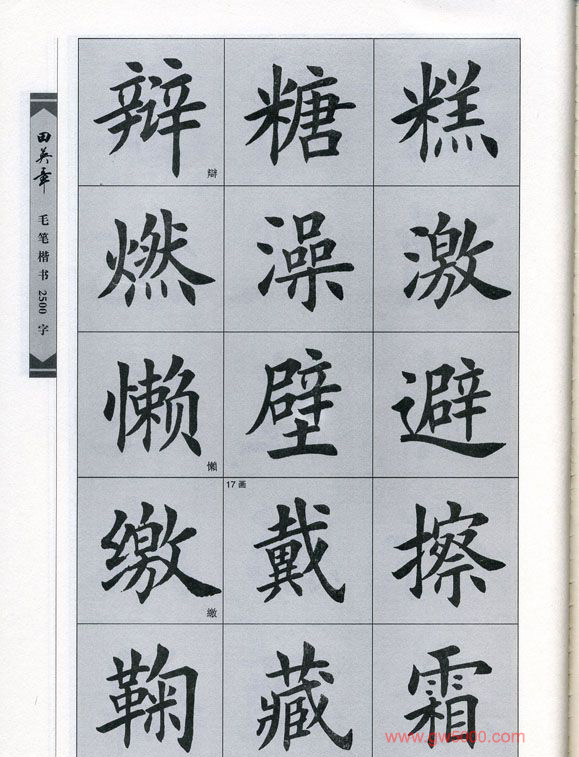 田英章
毛笔楷书2500字
辩 辯 糖 糕
燃 澡 激
懒 懶 壁 避
缴 繳 17画 戴 擦
鞠 藏 霜
www.gw5000.com